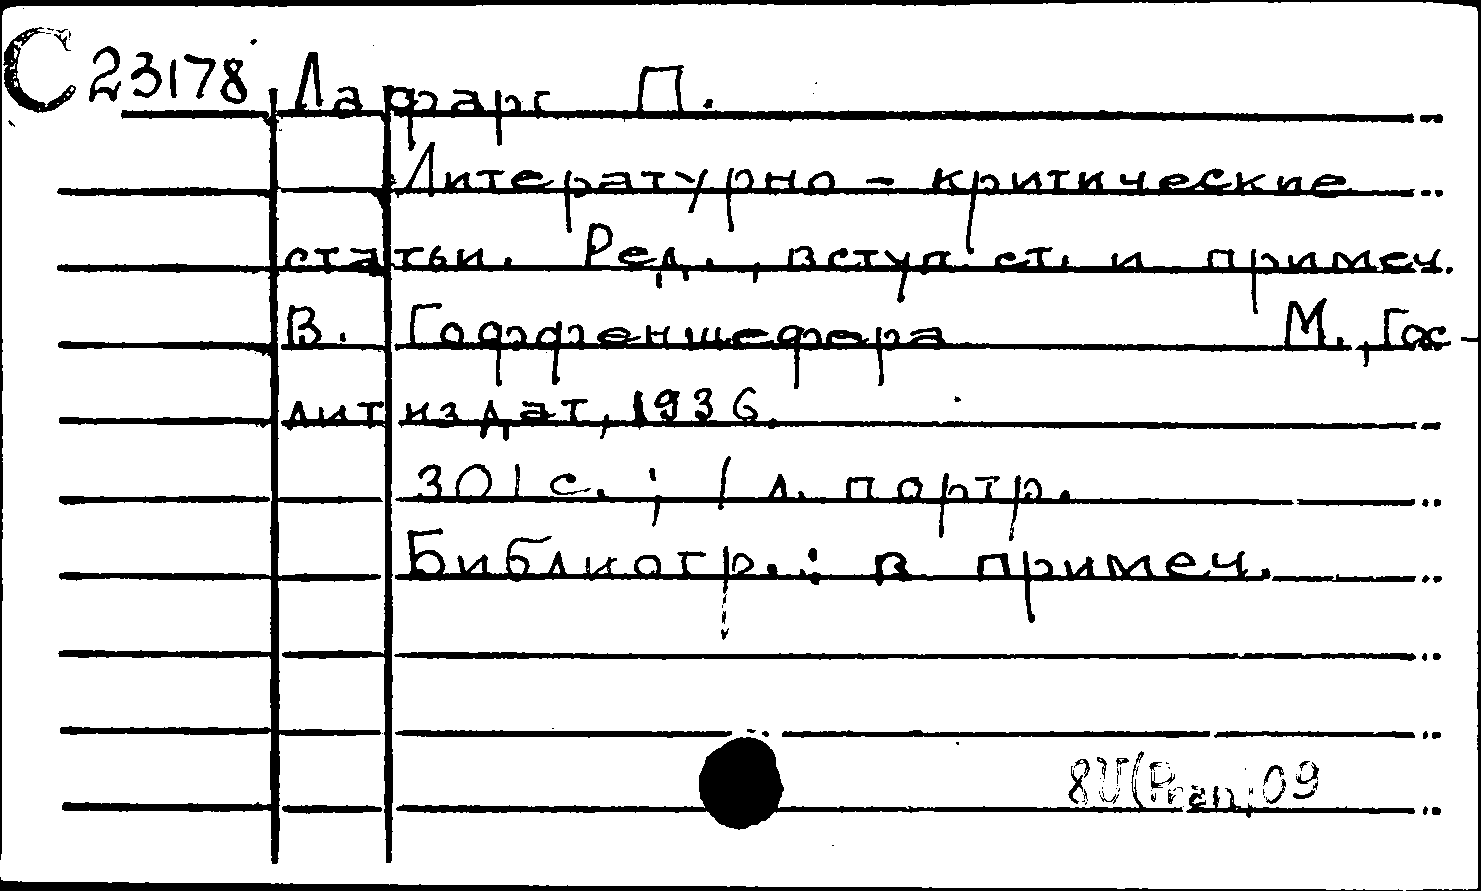 С 23178 Лафарг П.
Литературно - критические
статьи. Ред., вступ ст. и примеч.
В. Гоффеншефера М., Гос-
литиздат, 1936.
301 с. ; 1 л. портр.
Библиогр.: в примеч.
8U(Fran)09